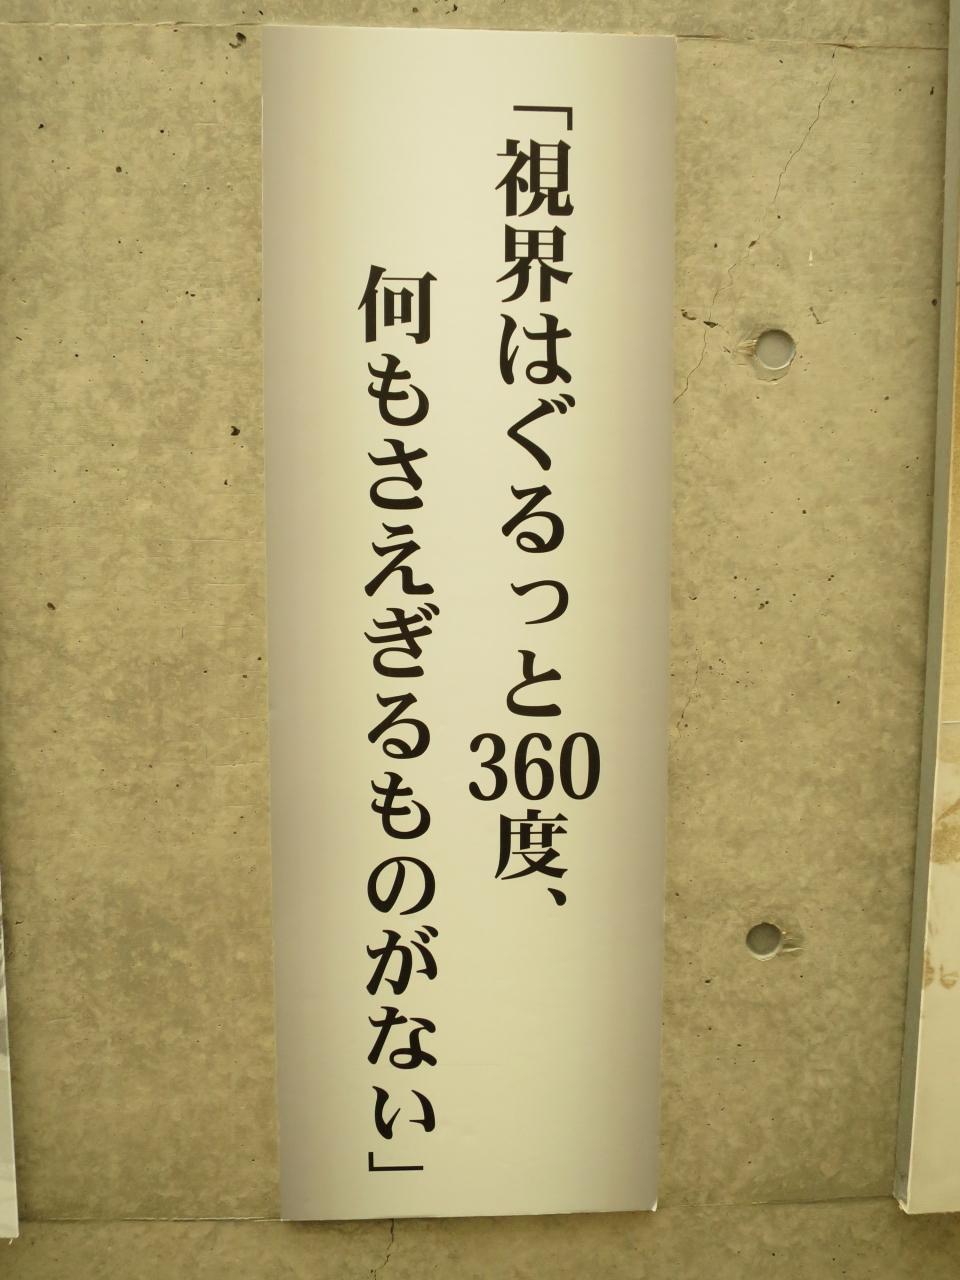 「視界はぐるっと360度、
何もさえぎるものがない」